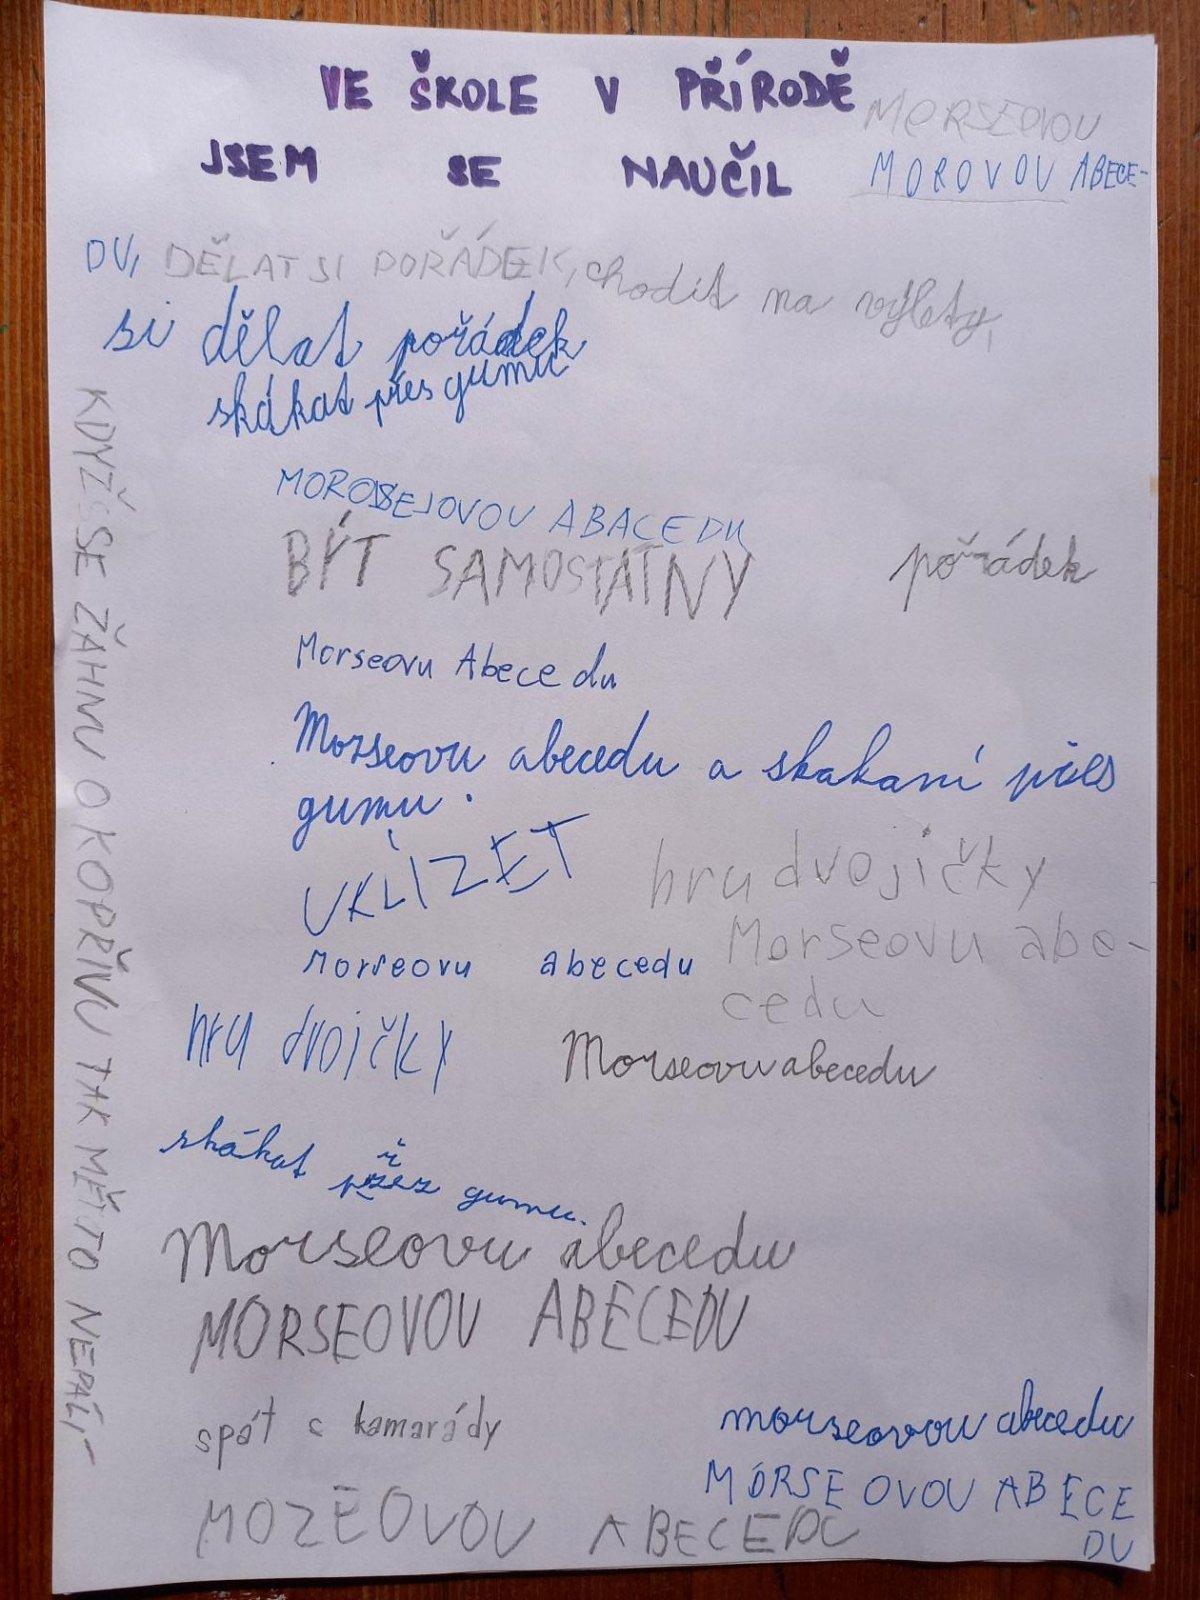 VE ŠKOLE V PŘÍRODĚ
JSEM SE NAUČIL
MORSEOVOU
MOROVOU ABECE-
DU, DĚLAT SI POŘÁDEK, chodit na výlety,
si dělat pořádek
skákat přes gumu
MOROSEJOVOU ABACEDU
BÝT SAMOSTATNÝ
pořádek
Morseovu Abecedu
Morseovu abecedu a skakaní přes
gumu.
UKLÍZET
hru dvojičky
Morseovu abe-
cedu
Morseovu abecedu
hru dvojičky
Morseovu abecedu
skákat přez gumu.
Morseovu abecedu
MORSEOVOU ABECEDU
spát s kamarády
morseovou abecedu
MORSEOVOU ABECE
DU
MOZEOVOU ABECEDU
KDYŽ SE ŽÁHNU O KOPŘIVU TAK MĚ TO NEPÁLÍ